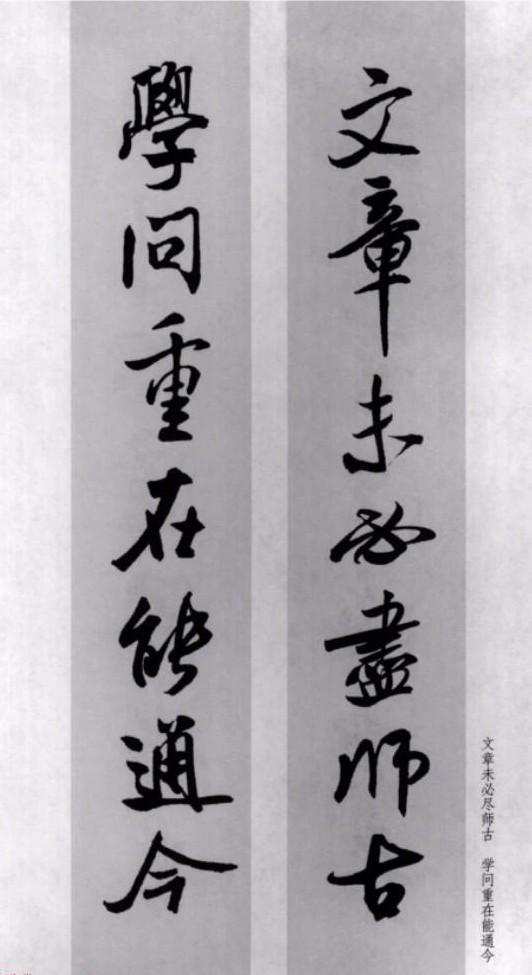 文章未必盡師古
學問重在能通今
文章未必尽师古 学问重在能通今